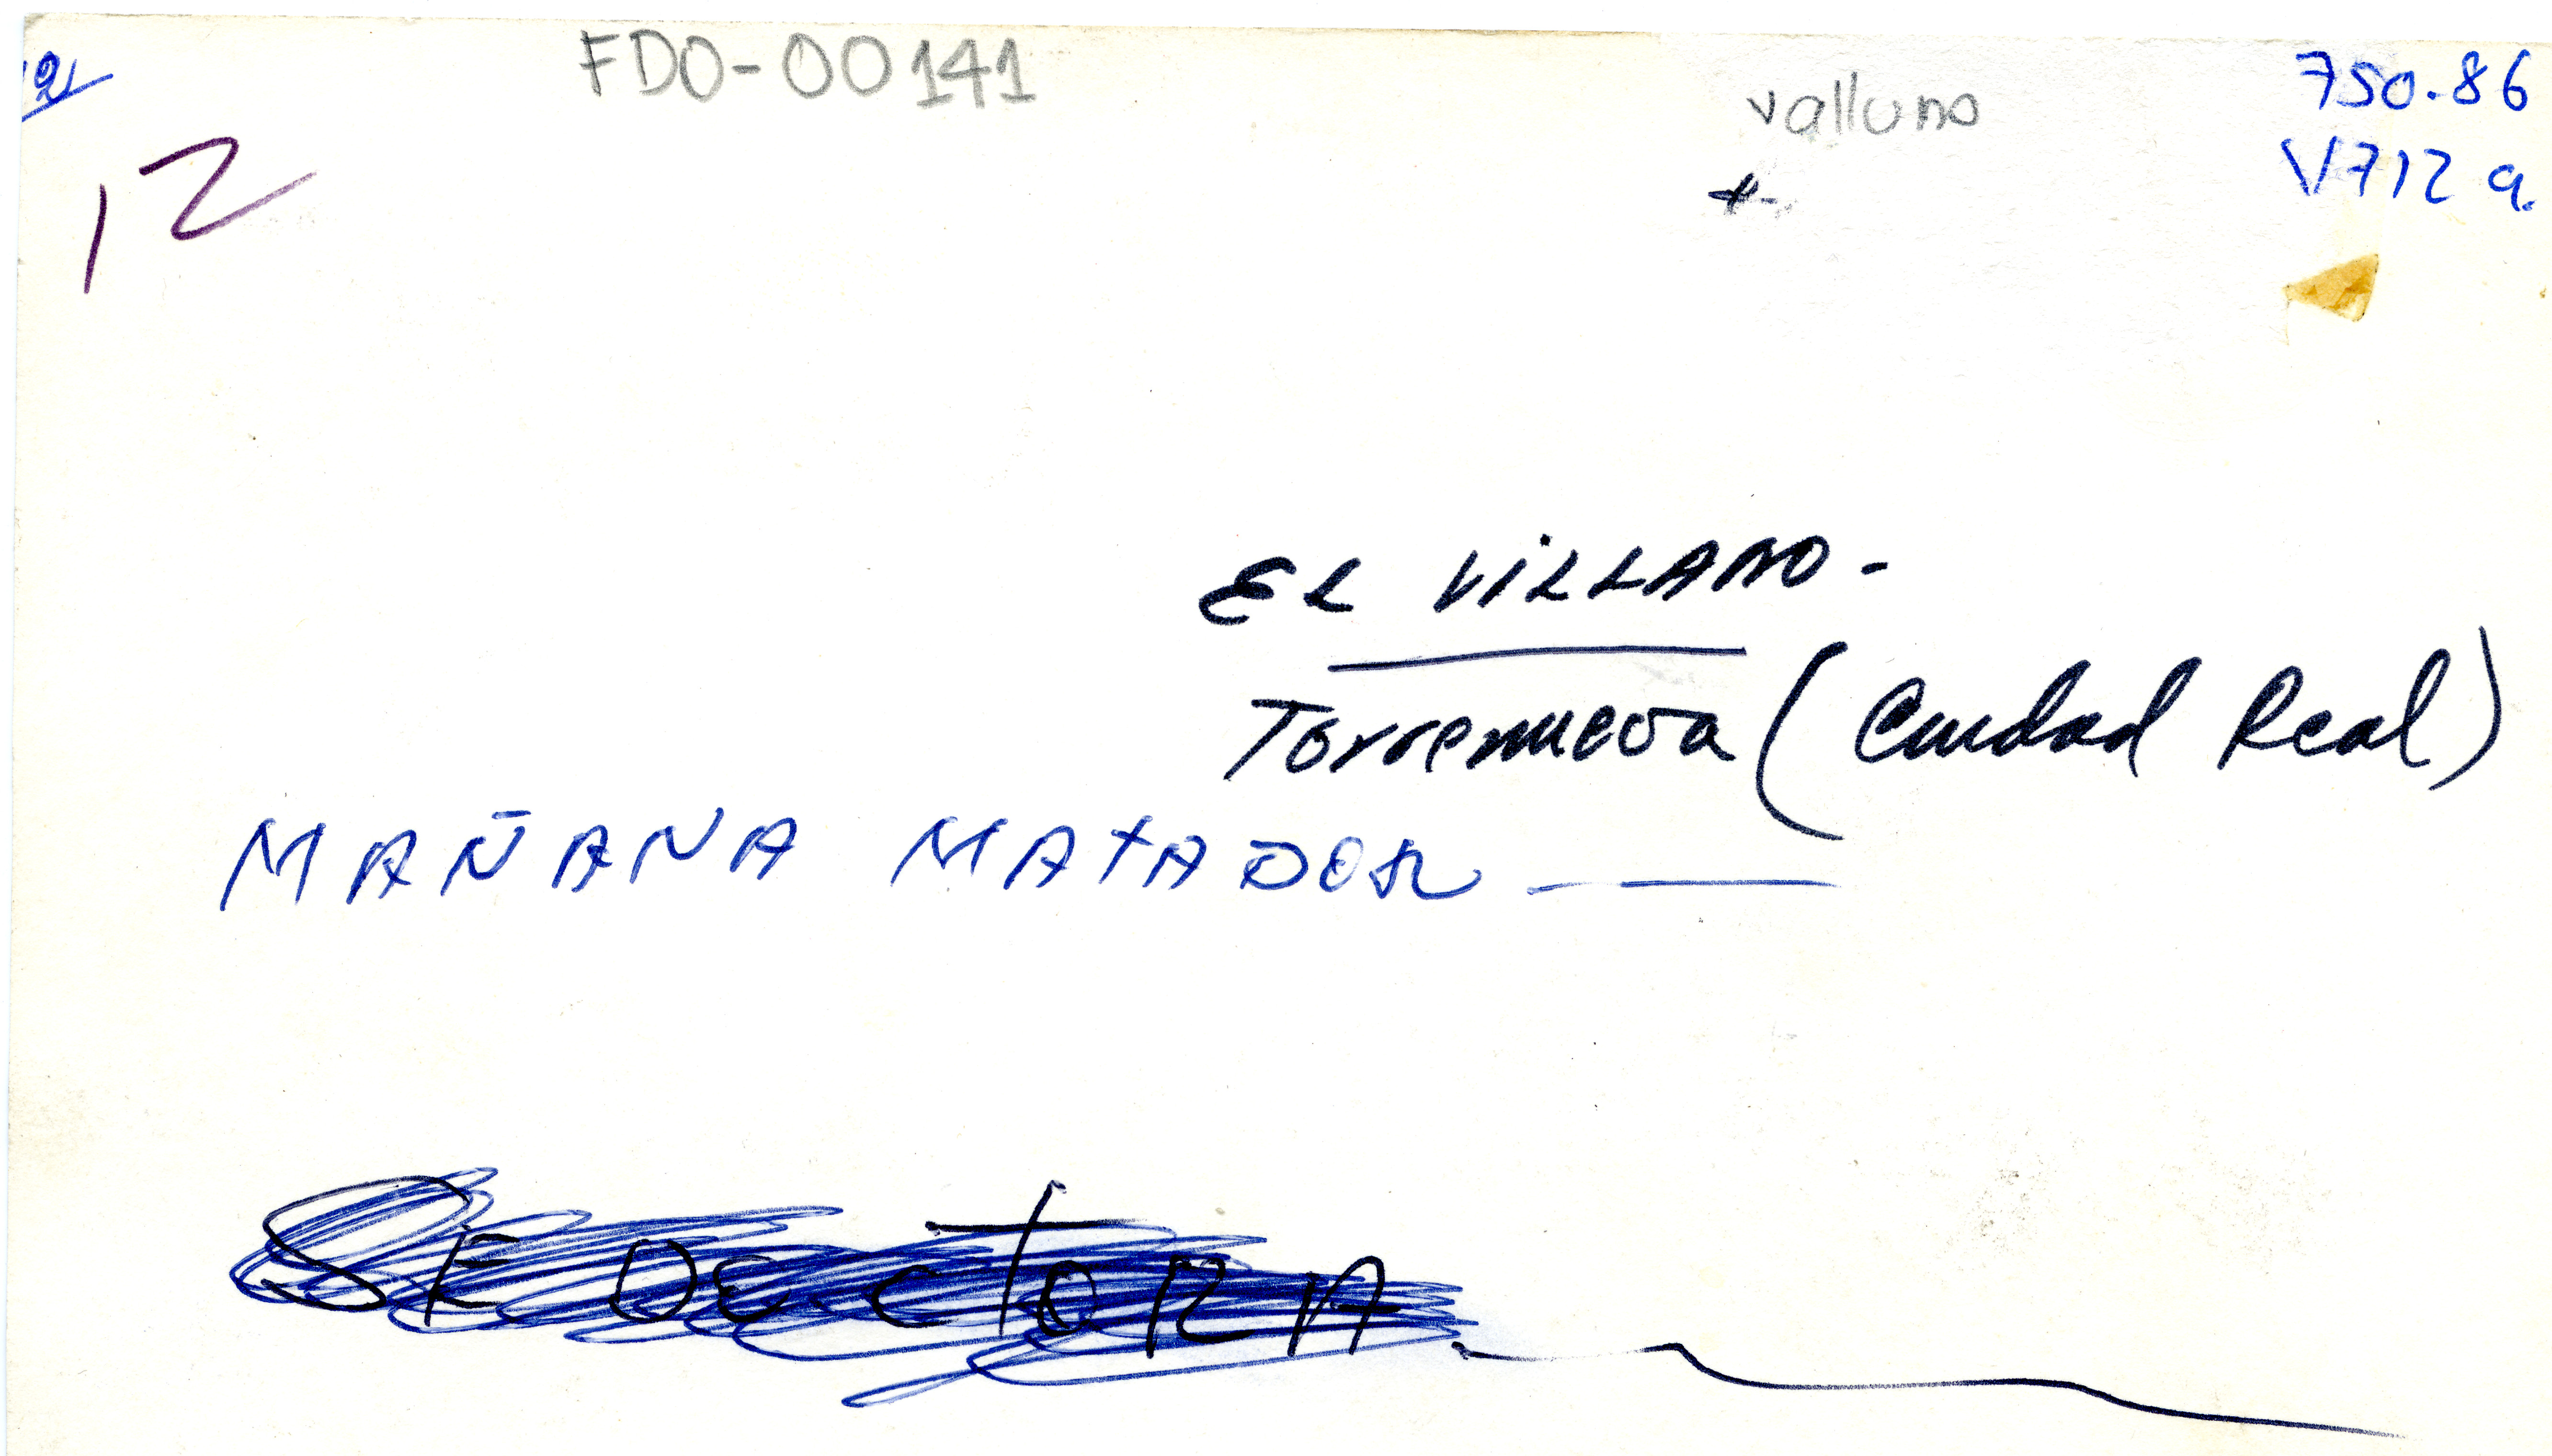 12
FDO-00141
valluno
750.86
V712 a.
12
EL VILLANO-
Torrenueva (Ciudad Real)
MAÑANA MATADOR
SE DECTORA